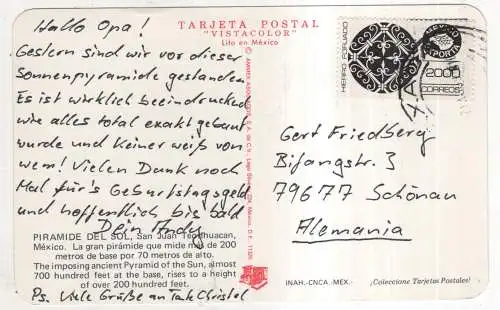 TARJETA POSTAL
"VISTACOLOR"
Lito en México
Hallo Opa!
Gestern sind wir vor dieser
Sonnenpyramide gestanden
Es ist wirklich beeindruckend
wie alles total exakt gebaut
wurde und keiner weiß von
wem! Vielen Dank noch
Mal für's Geburtstagsgeld
und hoffentlich bis bald
Dein Andy
PIRAMIDE DEL SOL, San Juan Teotihuacan,
México. La gran pirámide que mide más de 200
metros de base por 70 metros de alto.
The imposing ancient Pyramid of the Sun, almost
700 hundred feet at the base, rises to a height
of over 200 hundred feet.
Ps. Viele Grüße an Tante Christel
HIERRO FORJADO
MEXICO
EXPORTA
2000
CORREOS
Gert Friedberg
Bifangstr. 3
79677 Schönau
Alemania
INAH.-CNCA.-MEX.-
¡Coleccione Tarjetas Postales!